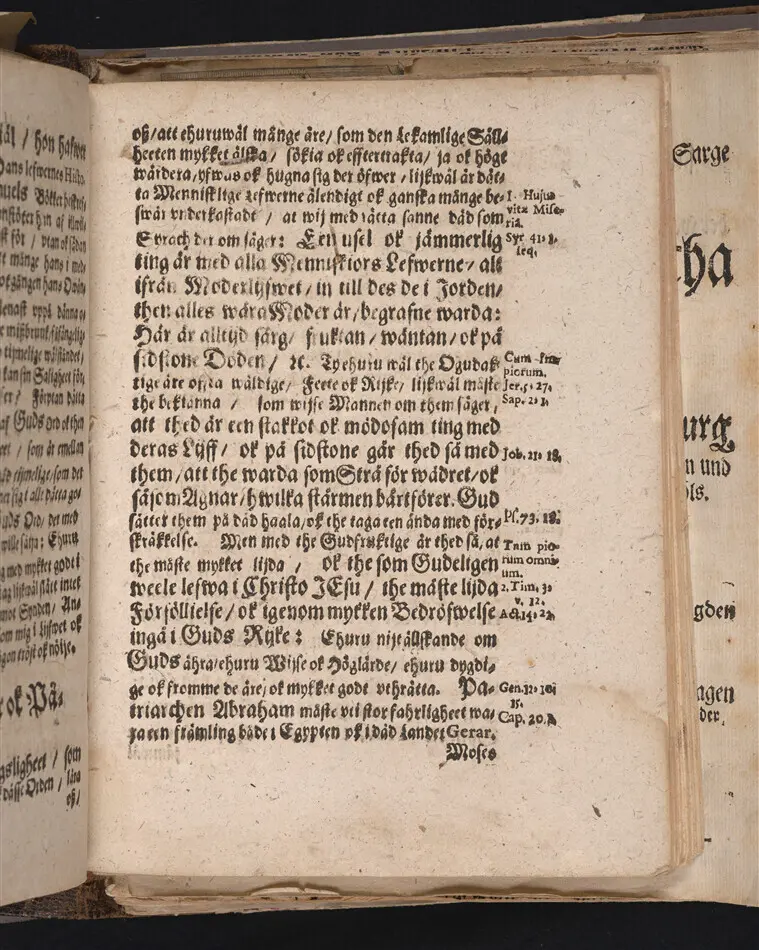 oß/att ehuruwäl månge äre/ som den Lekamlige Säll-
heeten mykket älska/ sökia ok effttertrakta/ ja ok höge
wärdera/yfwas ok hugna sig der öfwer/ lijkwäl är dät-
ta Mennisklige Lefwerne älendigt ok ganska månge be-
swär underkastadt/ at wij med rätta sanne däd som
Syrach der om säger: Een usel ok jämmerlig
ting är med alla Menniskiors Lefwerne/ alt
ifrån Moderlijfwet/ in till des de i Jorden/
then alles wåra Moder är/ begrafne warda:
Här är alltijd särg/ fruktan/ wäntan/ ok på
sidstone Döden/ ꝛc. Ty ehuru wäl the Ogudak-
tige äre offta wäldige/ Feete ok Rijke/ lijkwäl måste
the bekänna/ som wijse Mannen om them säger,
att thed är een stakkot ok mödosam ting med
deras Lijff/ ok på sidstone går thed så med
them/ att the warda som Strå för wädret/ ok
såsom Agnar/ hwilka stårmen bårtförer. Gud
sätter them på däd haala/ ok the taga een ända med för-
skräkkelse. Men med the Gudfruktige är thed så, at
the måste mykket lijda/ ok the som Gudeligen
weele lefwa i Christo JEsu/ the måste lijda
Förföllielse/ ok igenom mykken Bedröfwelse
ingå i Guds Rijke: Ehuru nijtällskande om
Guds ähra/ ehuru Wijse ok Höglärde/ ehuru dygdi-
ge ok fromme de äre/ ok mykket godt uthrätta. Pa-
triarchen Abraham måste uti stor fahrligheet wa-
ra een främling både i Egypten ok i däd Landet Gerar.
Moses
I. Hujus
vitæ Mise-
ria.
Syr 41. 1.
seq.
Cum Im-
piorum.
Jer. 5. 27.
Sap. 2. 1.
Job. 21. 18.
Ps. 73. 18.
Tum pio-
rum omni-
um.
2. Tim. 3.
v. 12.
Act. 14. 22.
Gen. 12. 10.
Cap. 20. 1.
Sarge
tha
urg
n und
ols.
gden
agen
der.